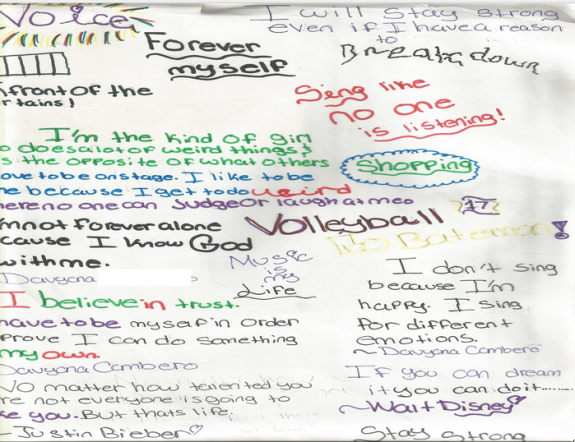 Voice
I will stay strong
even if I have a reason
to
Break down
Forever
myself
front of the
rtains!
Sing like
no one
is listening!
I'm the kind of girl
o does alot of weird things &
s the opposite of what others
ove to be on stage. I like to be
e because I get to do weird
here no one can Judge or laugh at me
Shopping
17
Volleyball
mnot forever alone
cause I know God
with me.
Music
is
my
Life
Davyona
I believe in trust.
have to be myself in order
prove I can do something
my own.
Davyona Cambero
No matter how talented you
re not everyone is going to
ke you. But thats life.
Justin Bieber
I don't sing
because I'm
happy. I sing
for different
emotions.
~Davyona Cambero
If you can dream
it you can do it.......
~Walt Disney
Stay Strong